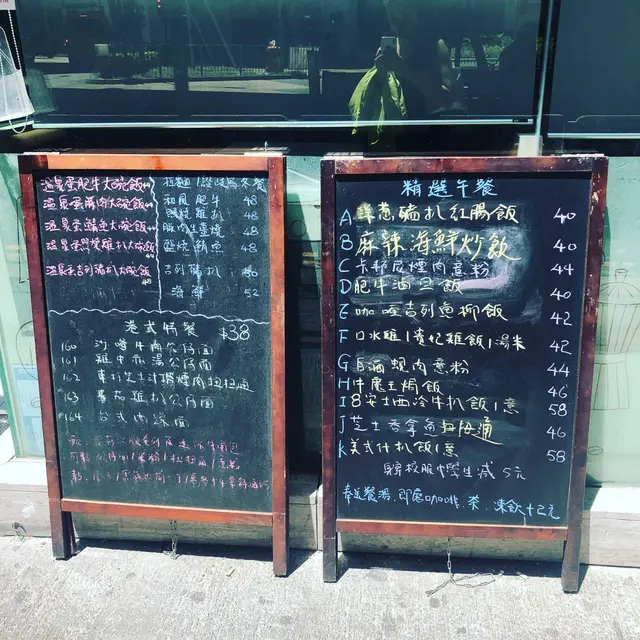 溫泉蛋肥牛大碗飯
溫泉蛋豚肉大碗飯
溫泉蛋鰻魚大碗飯
溫泉蛋雞扒大碗飯
溫泉蛋吉列豬扒大碗飯
48
拉麵 烏冬餐
和風肥牛 48
燒雞扒 48
豚肉生薑燒 48
鰻魚 48
吉列豬扒 50
海鮮 52
港式快餐 $38
160 沙嗲牛肉公仔面
161 雞中翼湯公仔面
162 扭扭通
163 蕃茄雞扒公仔面
164 台式肉燥面
精選午餐
A 洋蔥豬扒紅腸飯 40
B 麻辣海鮮炒飯 40
C 卡邦尼煙肉意粉 44
D 肥牛滷旦飯 40
E 咖喱吉列魚柳飯 42
F 口水雞/貴妃雞飯/湯米 42
G 白酒蜆肉意粉 44
H 牛魔王焗飯 46
I 8安士西冷牛扒飯/意 58
J 芝士吞拿魚扭扭通 46
K 美式什扒飯/意 58
穿校服中學生減5元
奉送餐湯.即磨咖啡.茶.凍飲+2元